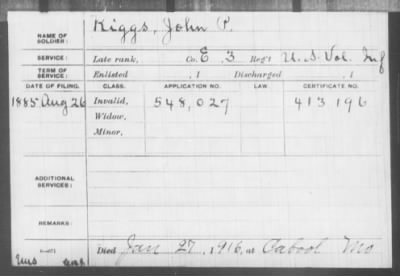 NAME OF SOLDIER: Riggs, John P.
SERVICE: Late rank, Co. E. 3 Reg't U.S. Vol. Inf
TERM OF SERVICE: Enlisted , 1 Discharged , 1
DATE OF FILING. CLASS. APPLICATION NO. LAW. CERTIFICATE NO.
1885 Aug 26 Invalid, 548,027 413196
Widow,
Minor,
ADDITIONAL SERVICES:
REMARKS:
Died Jan 27, 1916, at Cabool Mo